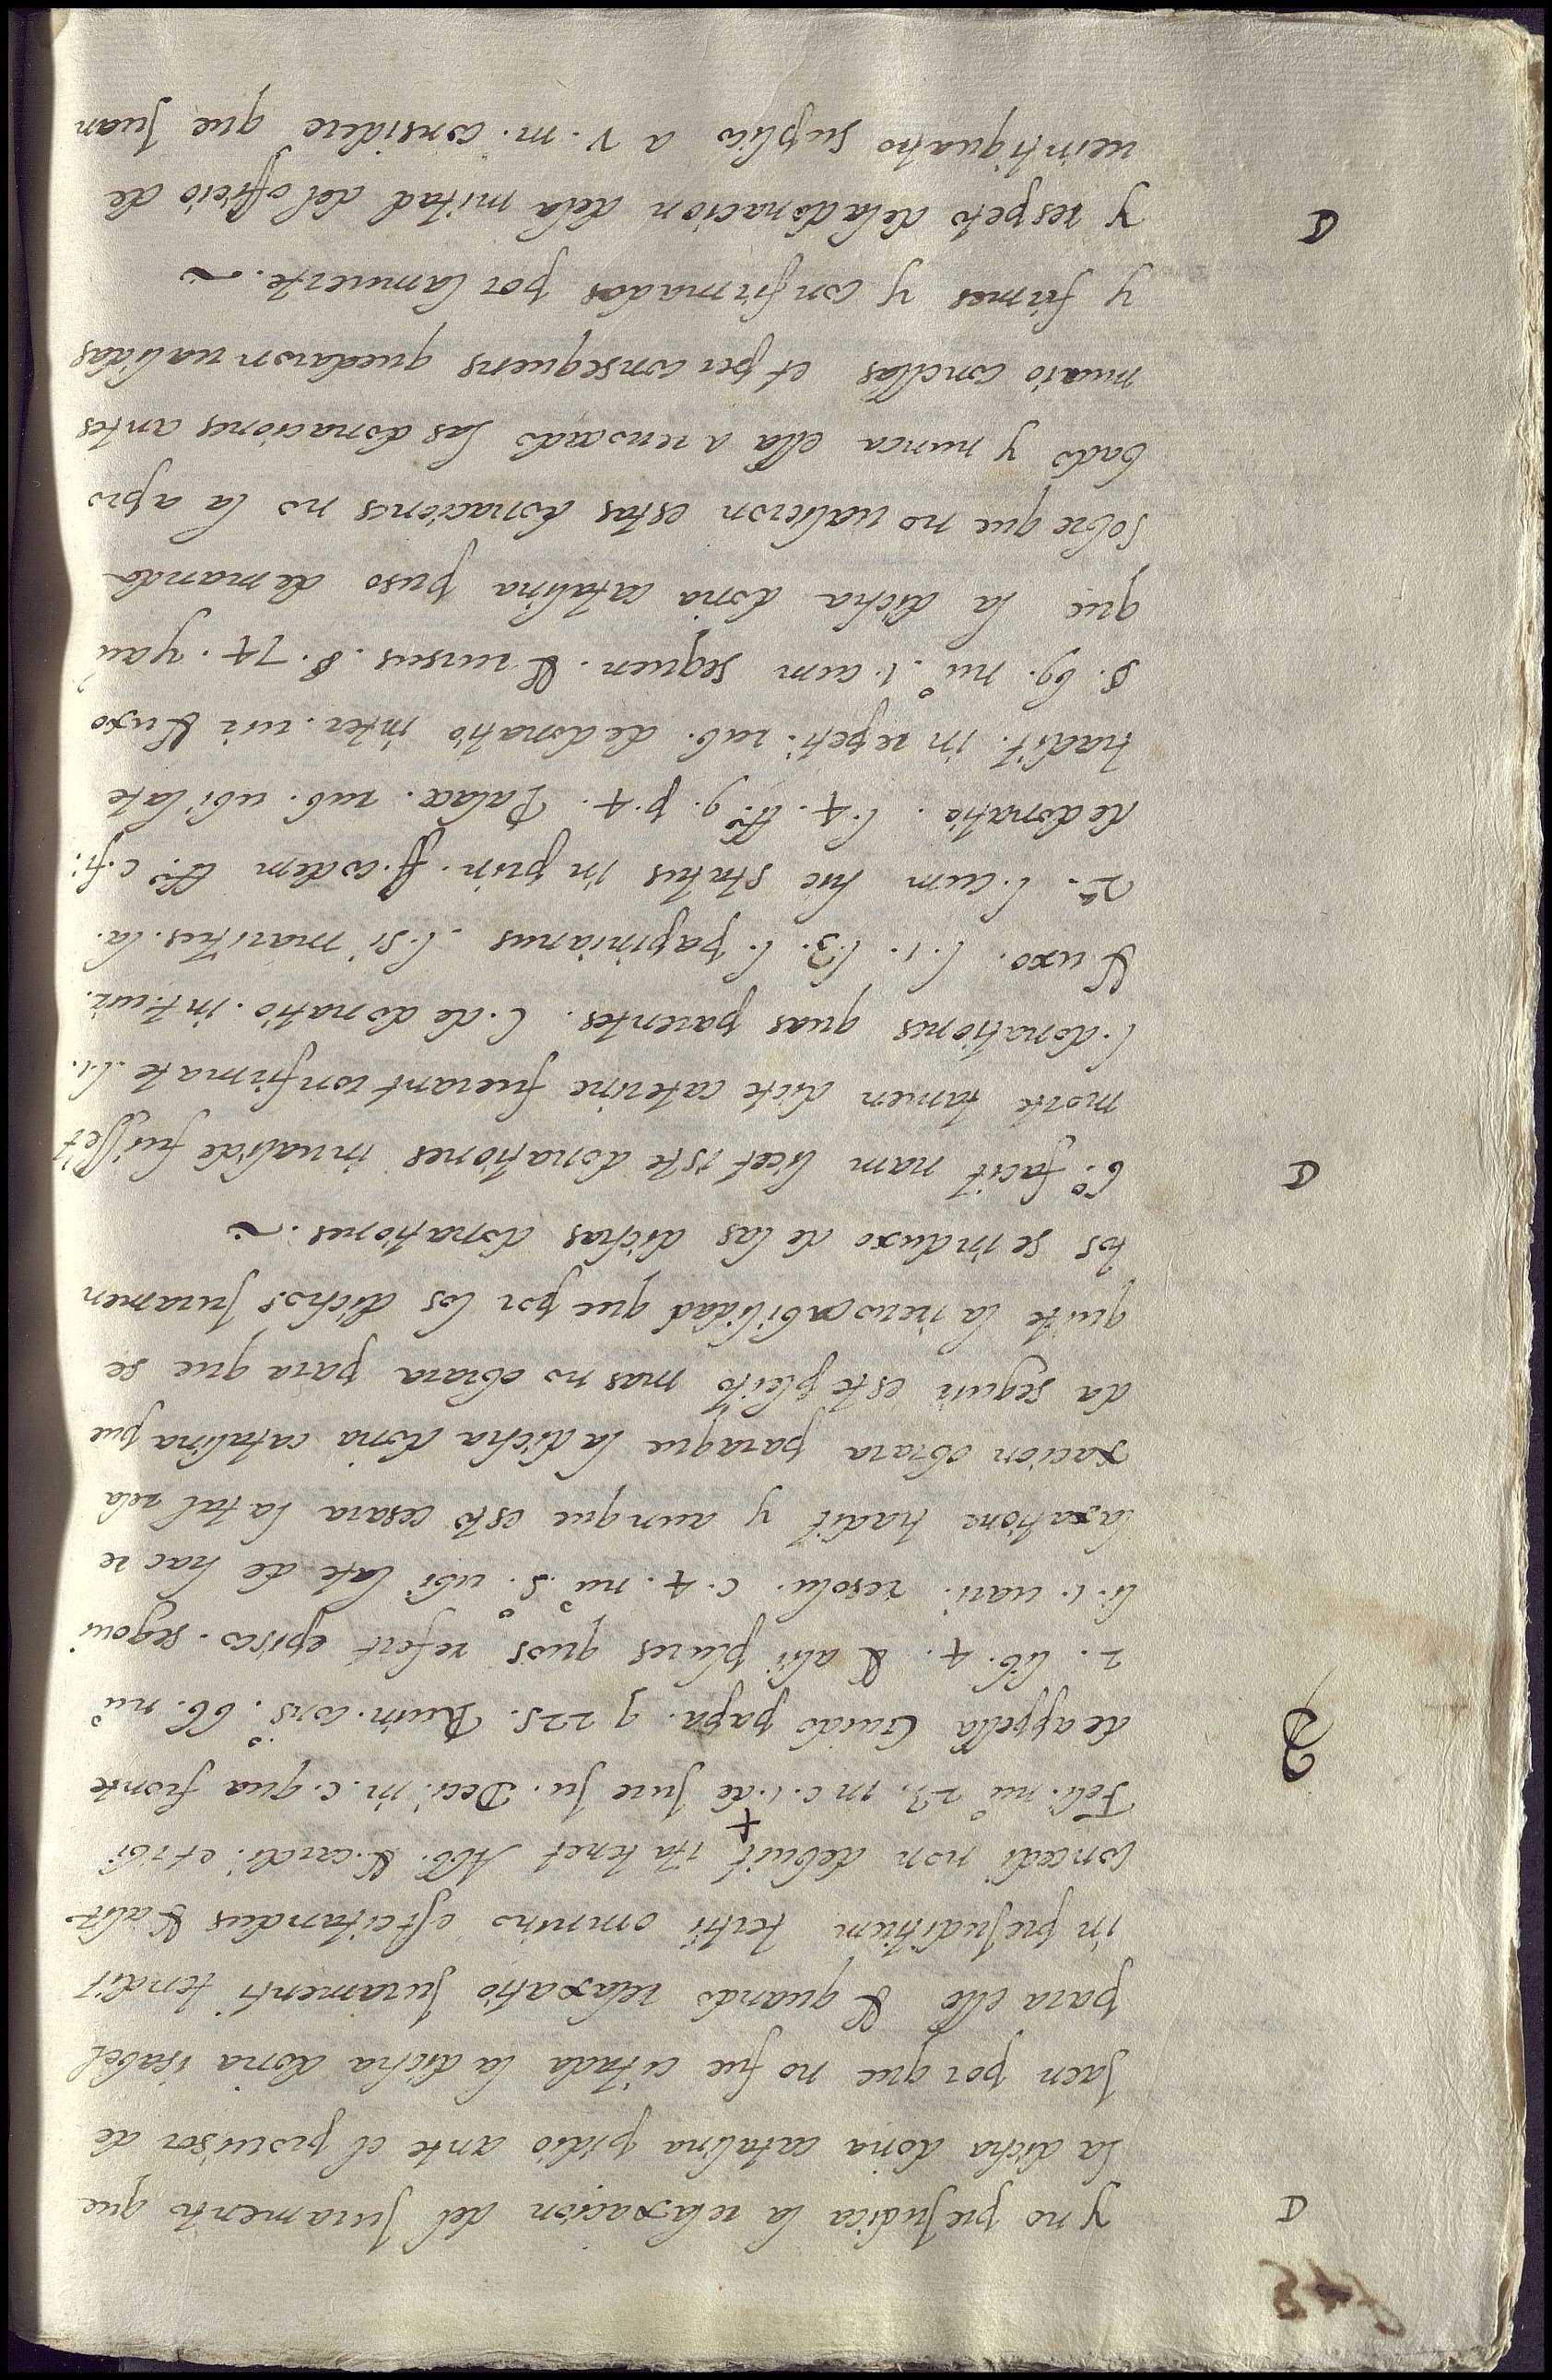 y no preJudica la relaxacion del Juramento que
la dicha doña catalina pidio ante el prouisor de
Jaen por que no fue citada la dicha doña isabel
para ello & quando relaxatio Juramenti tendit
in preJuditium tertii omnino est citandus & alr̃
concedi non debuit ita tenet Abb. & cardi. et ibi
Feli. nuº 23. in c. 1. de Jure Ju. Deci. in c. qua fronte
de appella Guido papa. q 225. Ruin. cons. 66. nuº
2. lib. 4. & alii plures quos refert episco. segoui
li. 1. uari. resolu. c. 4. nuº 5. ubi late de hac re
laxatione tradit y aunque esto cesara la tal rela
xacion obrara paraque la dicha doña catalina pue
da seguir este pleito mas no obrara para que se
quite la reuocabilidad que por los dichos Juramen
tos se induxo de las dichas donationes.
6º facit nam licet iste donationes inualide fuisset
morte tamen dicte caterine fuerant confirmate l. 1.
l. donationes quas parentes. C. de donatio. int. uir.
& uxo. l. 1. l. 3. l. papinianus l. si maritus. la.
2ª. l. cum hic status in prin. ff. eodem tto. c. fi.
de donatio. l. 4. tto. 9. p. 4. Palac. rub. ubi late
tradit in repeti. rub. de donatio inter. uir & uxo
§. 69. nuº 1. cum sequen. & rursus. §. 74. y aũ
que la dicha doña catalina puso demanda
sobre que no ualieron estas donaciones no la apro
bado y nunca ella a reuocado las donaciones antes
murio concllas et per consequens quedaron ualidas
y firmes y confirmados por lamuerte.
y respeto dela donacion dela mitad del officio de
ueintiquatro suplico a V. m. considere que Juan